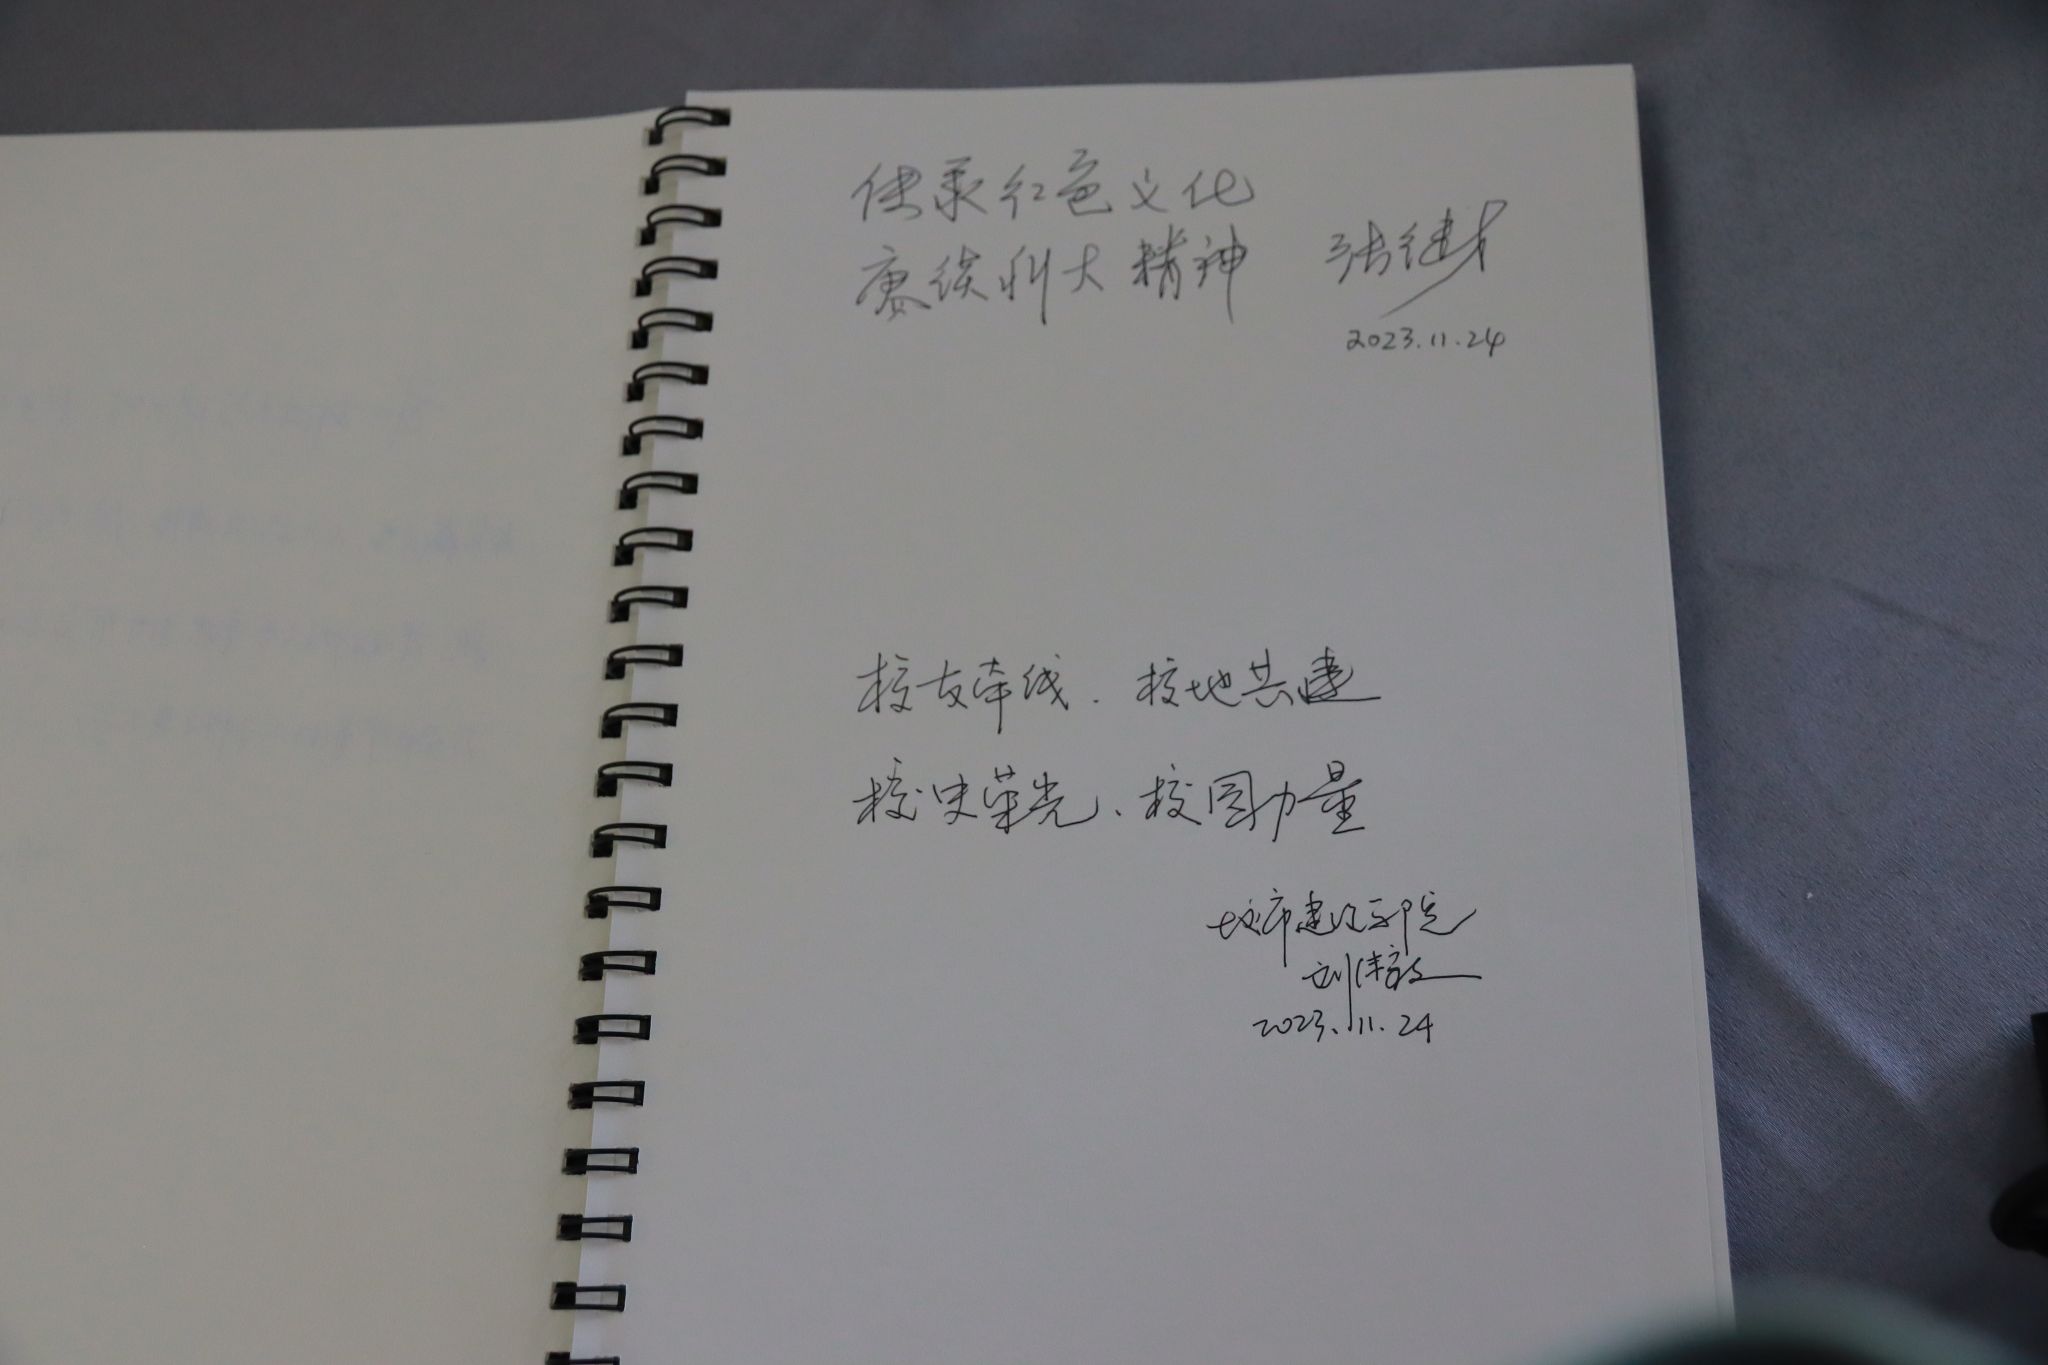 传承红色文化
赓续科大精神
张继
2023.11.24
校友牵线、校地共建
校史荣光、校园力量
城市建设学院
刘
2023.11.24